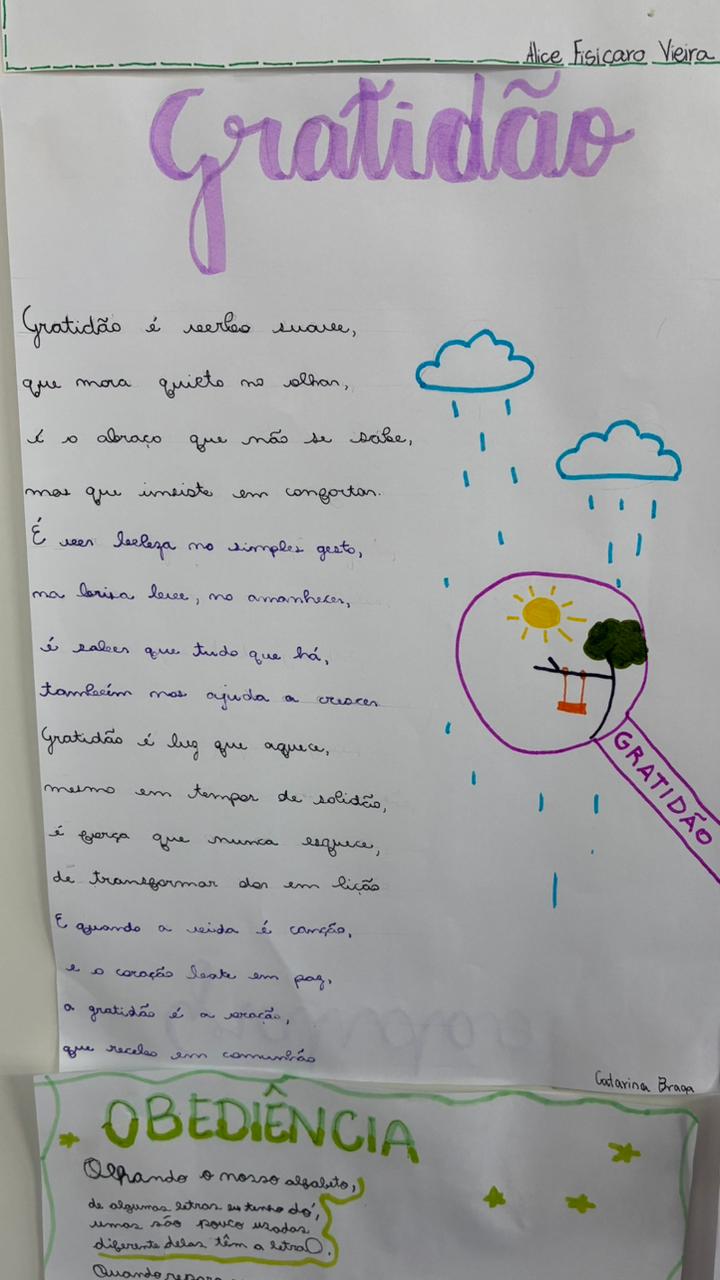 Alice Fisicaro Vieira
Gratidão
Gratidão é verbo suave,
que mora quieto no olhar,
É o abraço que não se sabe,
mas que insiste em confortar.
É ver beleza no simples gesto,
na brisa leve, no amanhecer,
é saber que tudo que há,
também nos ajuda a crescer
Gratidão é luz que aquece,
mesmo em tempos de solidão,
é força que nunca esquece,
de transformar dor em lição
E quando a vida é canção,
e o coração bate em paz,
a gratidão é a oração,
que recebo em comunhão
GRATIDÃO
Catarina Braga
OBEDIÊNCIA
Olhando o nosso alfabeto,
de algumas letras eu tenho dó,
umas são pouco usadas
diferente delas têm a letra O.
Quando